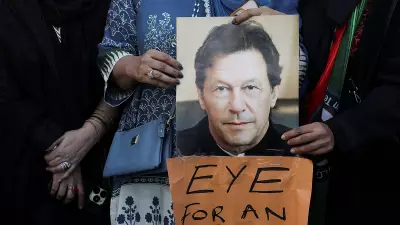 EYE
FOR AN